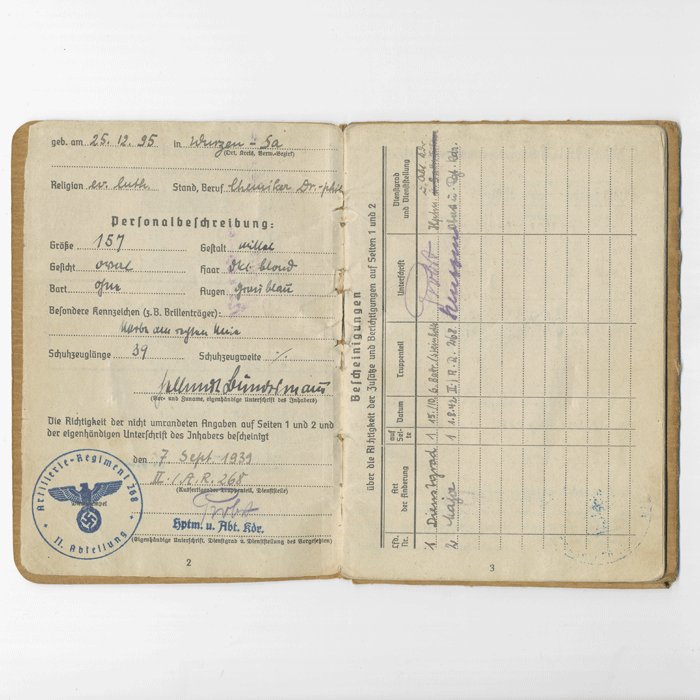 geb. am 25.12.95 in Wurzen - Sa
(Ort, Kreis, Verw.-Bezirk)
Religion ev. luth. Stand, Beruf Chemiker Dr.-phil
Personalbeschreibung:
Größe 157 Gestalt mittel
Gesicht oval Haar dkl. blond
Bart ohne Augen graublau
Besondere Kennzeichen (z.B. Brillenträger):
Narbe am rechten Knie
Schuhzeuglänge 39 Schuhzeugweite ·/.
(Vor- und Zuname, eigenhändige Unterschrift des Inhabers)
Die Richtigkeit der nicht umrandeten Angaben auf Seiten 1 und 2 und
der eigenhändigen Unterschrift des Inhabers bescheinigt
den 7 Sept. 1939
II./A.R. 268
(Ausfertigender Truppenteil, Dienststelle)
Hptm. u. Abt. Kdr.
(Eigenhändige Unterschrift, Dienstgrad u. Dienststellung des Vorgesetzten)
Artillerie-Regiment 268
II. Abteilung
2
Bescheinigungen
über die Richtigkeit der Zusätze und Berichtigungen auf Seiten 1 und 2
Lfd. Nr.
Art der Änderung
auf Seite
Datum
Truppenteil
Unterschrift
Dienstgrad und Dienststellung
1. Dienstgrad 1
2. 1 1.8.42 II/A.R. 268
3